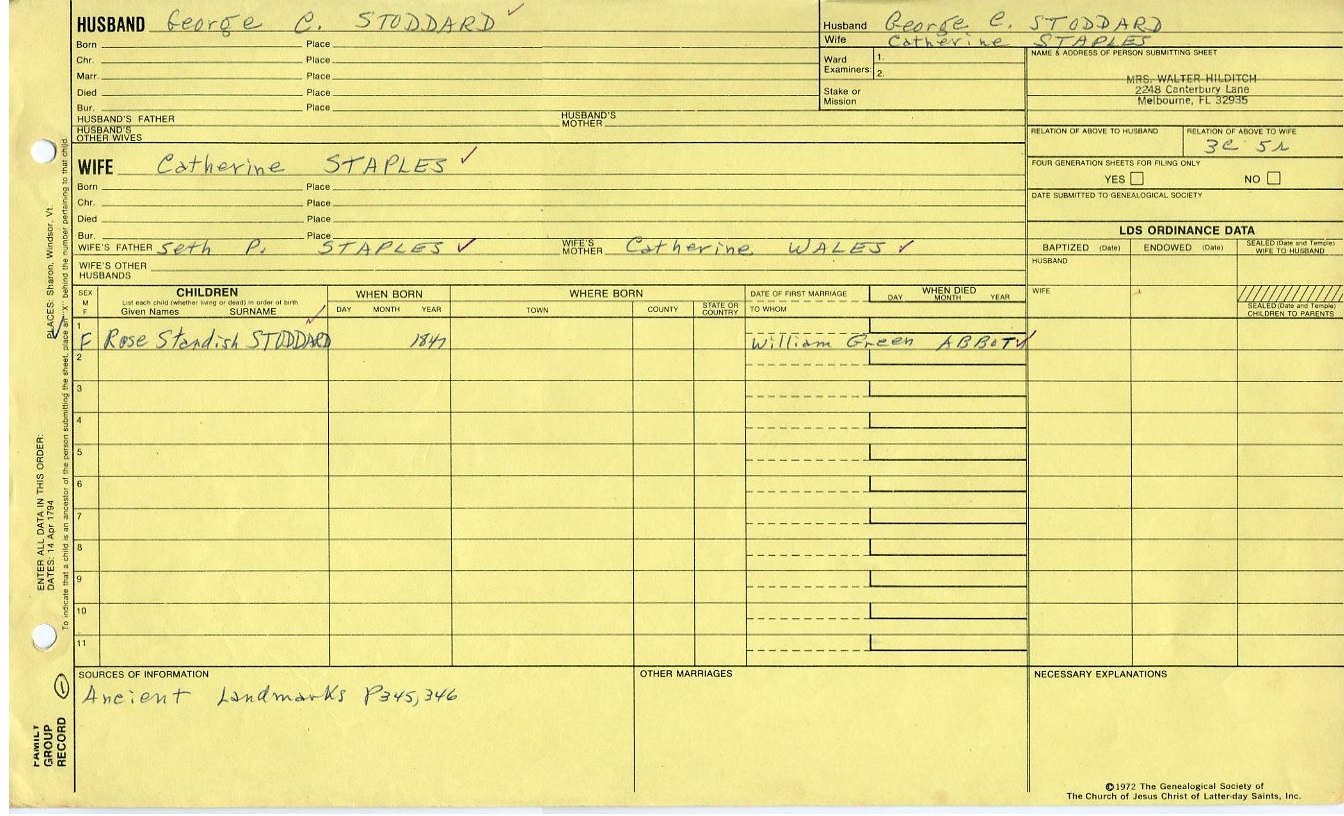 HUSBAND George C. STODDARD
Born Place
Chr. Place
Marr. Place
Died Place
Bur. Place
HUSBAND'S FATHER HUSBAND'S MOTHER
HUSBAND'S OTHER WIVES
Husband George C. STODDARD
Wife Catherine STAPLES
Ward Examiners: 1.
2.
Stake or Mission
NAME & ADDRESS OF PERSON SUBMITTING SHEET
MRS. WALTER HILDITCH
2248 Canterbury Lane
Melbourne, FL 32935
RELATION OF ABOVE TO HUSBAND RELATION OF ABOVE TO WIFE
3C 5r
FOUR GENERATION SHEETS FOR FILING ONLY
YES NO
DATE SUBMITTED TO GENEALOGICAL SOCIETY
WIFE Catherine STAPLES
Born Place
Chr. Place
Died Place
Bur. Place
WIFE'S FATHER Seth P. STAPLES WIFE'S MOTHER Catherine WALES
WIFE'S OTHER HUSBANDS
LDS ORDINANCE DATA
BAPTIZED (Date) ENDOWED (Date) SEALED (Date and Temple) WIFE TO HUSBAND
HUSBAND
WIFE
SEALED (Date and Temple) CHILDREN TO PARENTS
SEX M F
CHILDREN
List each child (whether living or dead) in order of birth
Given Names SURNAME
WHEN BORN
DAY MONTH YEAR
WHERE BORN
TOWN COUNTY STATE OR COUNTRY
DATE OF FIRST MARRIAGE
TO WHOM
WHEN DIED
DAY MONTH YEAR
1
F Rose Standish STODDARD 1847 William Green ABBOT
2
3
4
5
6
7
8
9
10
11
SOURCES OF INFORMATION
Ancient Landmarks P345,346
OTHER MARRIAGES
NECESSARY EXPLANATIONS
©1972 The Genealogical Society of
The Church of Jesus Christ of Latter-day Saints, Inc.
FAMILY GROUP RECORD 1
ENTER ALL DATA IN THIS ORDER:
DATES: 14 Apr 1794
PLACES: Sharon, Windsor, Vt.
To indicate that a child is an ancestor of the person submitting the sheet, place an "X" behind the number pertaining to that child.